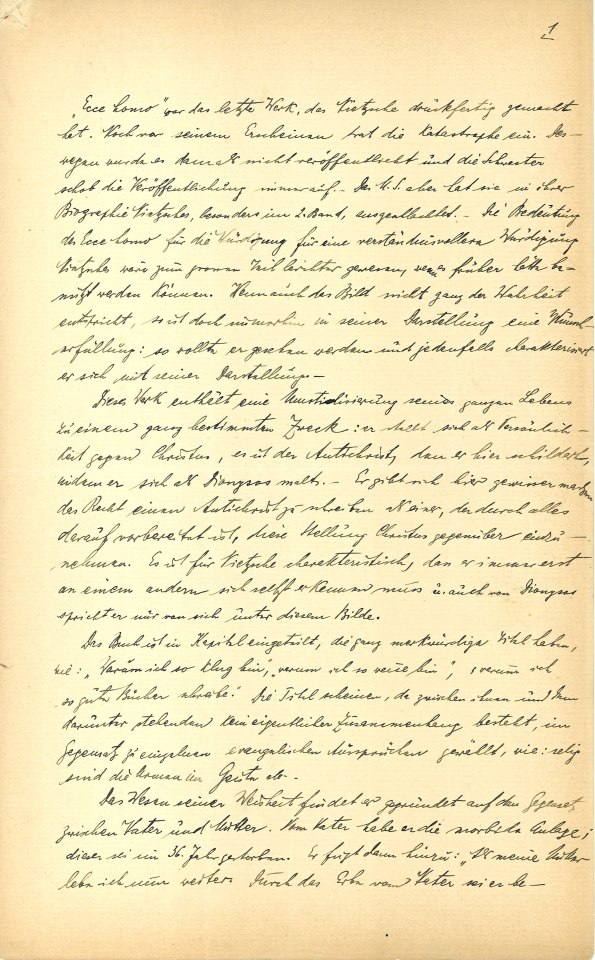 1
„Ecce homo" war das letzte Werk, das Nietzsche druckfertig gemacht
hat. Noch vor seinem Erscheinen trat die Katastrophe ein. Des-
wegen wurde es damals nicht veröffentlicht und die Schwester
schob die Veröffentlichung immer auf. – Das M.S. aber hat sie in ihrer
Biographie Nietzsches, besonders im 2. Band, ausgentbeutet. – Die Bedeutung
des Ecce homo für die Würdigung für eine verständnisvollere Würdigung
Nietzsches wäre zum grossen Teil leichter gewesen, wenn es früher hätte be-
nützt werden können. Wenn auch das Bild nicht ganz der Wahrheit
entspricht, so ist doch immerhin in seiner Darstellung eine Wunsch-
erfüllung: so wollte er gesehen werden und jedenfalls charakterisiert
er sich mit seiner Darstellung. –
Dieses Werk enthält eine seines ganzen Lebens
zu einem ganz bestimmten Zweck: er stellt sich als Persönlich-
keit gegen Christus, es ist der Antichrist, den er hier schildert,
indem er sich als Dionysos malt. – Er gibt sich hier gewissermassen
das Recht einen Antichrist zu schreiben als einer, der durch alles
darauf vorbereitet ist, diese Stellung Christus gegenüber einzu-
nehmen. Es ist für Nietzsche charakteristisch, dass er immer erst
an einem andern sich selbst erkennen muss u. auch von Dionysos
spricht er nur von sich unter diesem Bilde.
Das Buch ist in Kapitel eingeteilt, die ganz merkwürdige Titel haben,
wie: „Warum ich so klug bin", „warum ich so weise bin", „warum ich
so gute Bücher schreibe." Die Titel scheinen, da zwischen ihnen und dem
darunter stehenden kein eigentlicher Zusammenhang besteht, im
Gegensatz zu einzelnen evangelischen Aussprüchen gewählt, wie: selig
sind die Armen im Geiste etc. –
Das Wesen seiner Weisheit findet er gegründet auf den Gegensatz
zwischen Vater und Mutter. Vom Vater habe er die morbide Anlage;
dieser sei im 36. Jahr gestorben. Er fügt dann hinzu: „Als meine Mutter
lebe ich nun weiter. Durch das Erbe vom Vater sei es be-